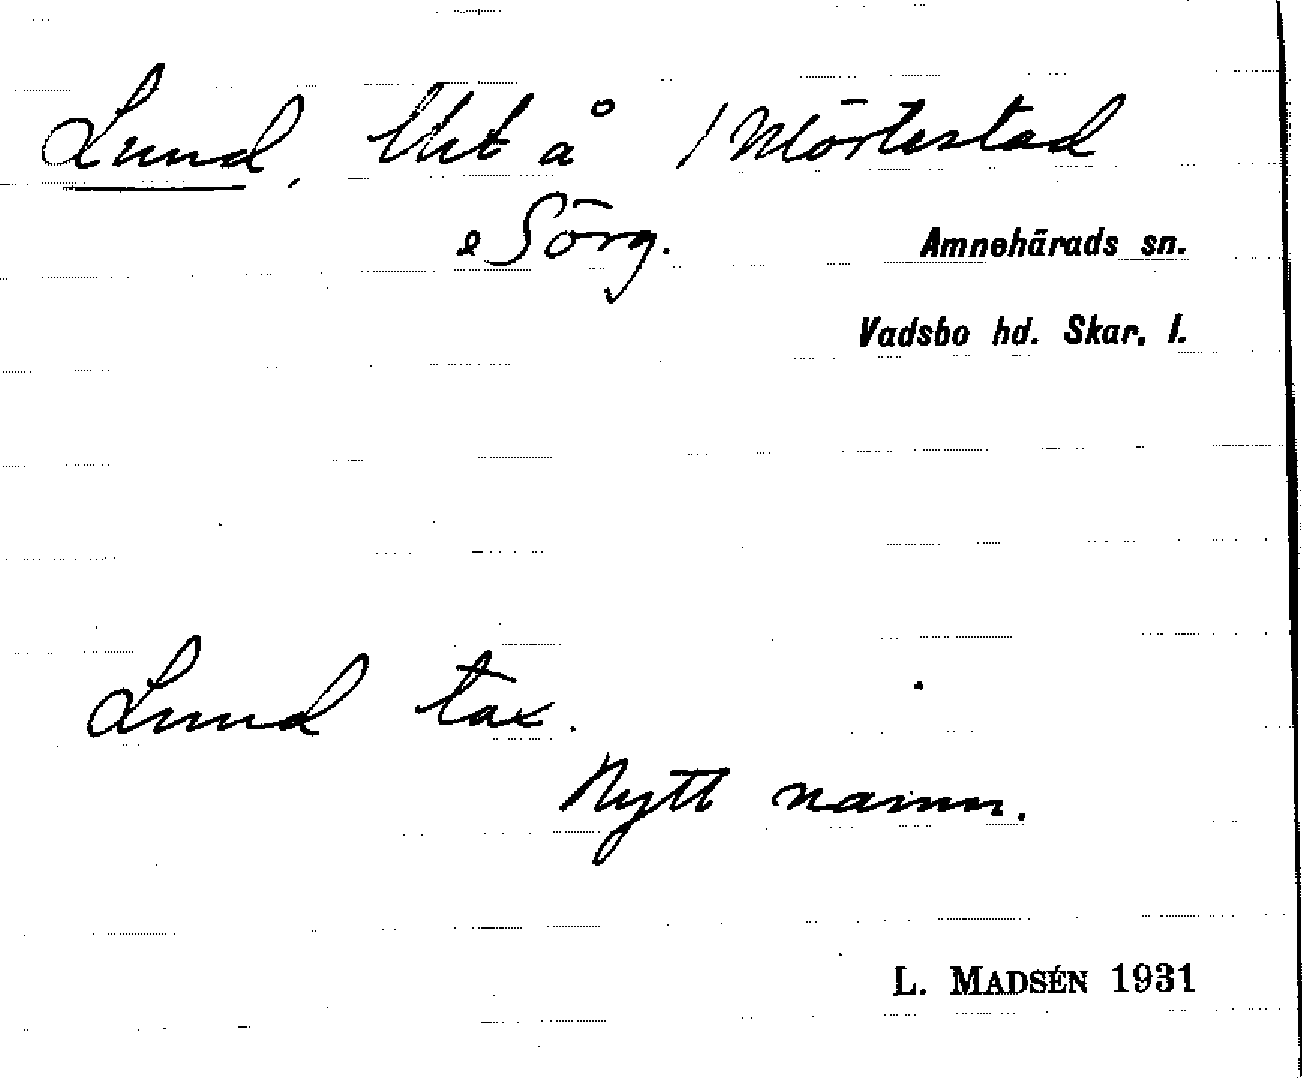 Lund, lht å 1 Mörtestad
e Sörg.
Amnehärads sn.
Vadsbo hd. Skar. l.
Lund tax.
Nytt namn.
L. MADSÉN 1931